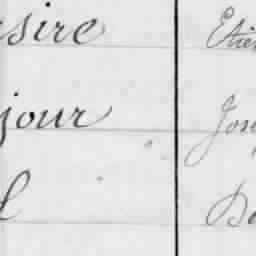 sire Etie
jour Jos
l Ba